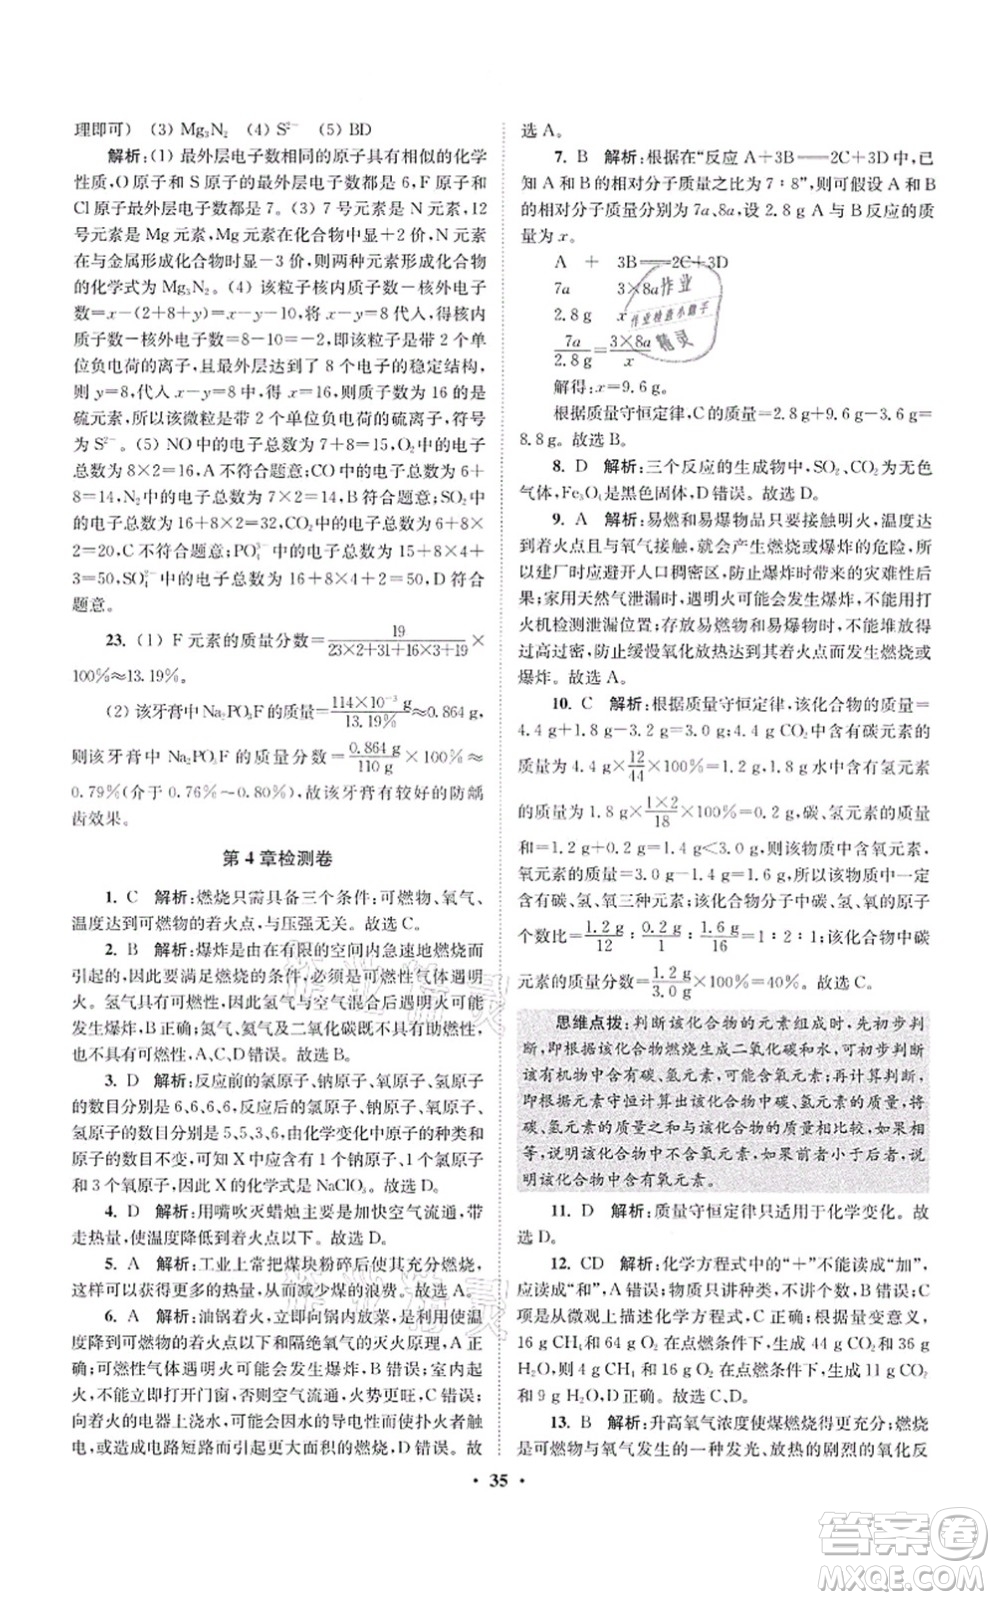 理即可) (3) Mg₃N₂ (4) S²⁻ (5) BD
解析:(1) 最外层电子数相同的原子具有相似的化学
性质,O 原子和 S 原子的最外层电子数都是 6,F 原子和
Cl 原子最外层电子数都是 7。(3) 7 号元素是 N 元素,12
号元素是 Mg 元素,Mg 元素在化合物中显+2 价,N 元
素在与金属形成化合物时显-3 价,则两种元素形成化合物
的化学式为 Mg₃N₂。(4) 该粒子核内质子数-核外电
子数=x-(2+8+y)=x-10-y,将 x=8 代入,得核内
质子数-核外电子数=8-10=-2,故该粒子是带 2 个
单位负电荷的离子,且最外层达到了 8 个电子的稳定结构,
故 y=8,代入 x-10-y=-2 中,得 x=16,质子数为 16 的是
硫元素,所以该微粒是带 2 个单位负电荷的硫离子,符号
为 S²⁻。(5) NO 中的电子总数为 7+8=15,O₂中的电子
总数为 8×2=16,A 不符合题意;CO 中的电子总数为 6+
8=14,N₂中的电子总数为 7×2=14,B 符合题意;SO₂中
的电子总数为 16+8×2=32,CO₂中的电子总数为 6+
8×2=22,C 不符合题意;PO₄³⁻中的电子总数为 15+8×4+
3=50,SO₄²⁻中的电子总数为 16+8×4+2=50,D 符合
题意。
23. (1) F 元素的质量分数=19/(23×2+31+16×3+19)×
100%≈13.19%。
(2) 该牙膏中 Na₂PO₃F 的质量=(114×10⁻³ g)/13.19%≈0.864 g,
则该牙膏中 Na₂PO₃F 的质量分数=0.864 g/110 g×100%≈
0.79%(介于 0.76%~0.80%),故该牙膏有较好的防龋
齿效果。
第 4 章检测卷
1. C 解析:燃烧只需具备三个条件:可燃物、氧气、
温度达到可燃物的着火点,与压强无关。故选 C。
2. B 解析:爆炸是由在有限的空间内急速地燃烧而
引起的,因此要满足燃烧的条件,必须是可燃性气体遇明
火。氢气具有可燃性,氢气与空气混合后遇明火可能
发生爆炸,B 正确;氮气、氦气及二氧化碳都不具有助燃性,也没有可
燃性,A、C、D 错误。故选 B。
3. D 解析:反应前的氯原子、钠原子、氧原子、氢原子
的数目分别是 6、6、6、6,反应后的氯原子、钠原子、氧原子、
氢原子的数目分别是 5、5、3、6,由化学变化中原子的种类和
原子的数目不变,可知 X 中应含有 1 个钠原子、1 个氯
原子和 3 个氧原子,所以 X 的化学式是 NaClO₃。故选 D。
4. D 解析:用嘴吹灭蜡烛主要是加快空气流通,
带走热量。故选 D。
5. A 解析:工业上常把煤块粉碎后使用,使其充分
燃烧,放出更多的热量,从而减少煤的浪费。故选 A。
6. A 解析:油锅着火,立即向锅内放菜,是利用使温
度降到可燃物的着火点以下和隔绝氧气的灭火原理,A 正
确;可燃性气体遇明火可能会发生爆炸,B 错误;室内起
火,不可立即打开门窗,否则会造成空气流通,火势更旺,C 错误;
向着火的电器上浇水,可能会因水的导电性而引起触
电,或造成电路短路而引起更大的燃烧,D 错误。故
选 A。
7. B 解析:根据“在反应 A+3B══2C+3D 中,已
知 A 和 B 的相对分子质量之比为 7∶8”,则可假设 A 和 B
的相对分子质量分别为 7a、8a,设 2.8 g A 与 B 反应的质
量为 x。
A + 3B══2C+3D
7a 3×8a
2.8 g x
7a/2.8 g=3×8a/x
解得:x=9.6 g。
根据质量守恒定律,C 的质量=2.8 g+9.6 g-3.6 g=
8.8 g。故选 B。
8. D 解析:三个反应的生成物中,SO₂、CO₂为无色
气体,Fe₃O₄是黑色固体,D 错误。故选 D。
9. A 解析:易燃和易爆物品只要接触明火,温度达
到着火点且与氧气接触,就可能产生燃烧或爆炸的危险,所
以建厂时应避开人口稠密区,防止爆炸时带来的灾难性后
果;家用天然气泄漏时,遇明火可能会发生爆炸,不可用打
火机检测泄漏位置;存放易燃物和易爆物时,不能堆放得
过高过密,防止缓慢氧化放热达到着火点而发生燃烧或爆
炸。故选 A。
10. C 解析:根据质量守恒定律,该化合物的质量=
4.4 g+1.8 g-3.2 g=3.0 g;4.4 g CO₂中含有碳元素的
质量为 4.4 g×12/44×100%=1.2 g,1.8 g 水中含有氢元素
的质量为 1.8 g×(1×2)/18×100%=0.2 g,由于碳、氢元素的质
量和=1.2 g+0.2 g=1.4 g<3.0 g,则该物质中含氧元素,
且质量为 3.0 g-1.4 g=1.6 g;该化合物分子中碳、氢、氧的原子
个数比为1.2 g/12∶0.2 g/1∶1.6 g/16=1∶2∶1;该化合物中碳
元素的质量分数=1.2 g/3.0 g×100%=40%。故选 C。
思维点拨:判断该化合物的元素组成时,先初步判
断,即根据该化合物燃烧生成二氧化碳和水,可初步判断
该有机物中含有碳、氢元素,可能含有氧元素;再计算判断,
即根据元素守恒计算出该化合物中碳、氢元素的质量,将
碳、氢元素的质量之和与该化合物的质量相比较,如果相
等,说明该化合物中不含氧元素,如果前者小于后者,说
明该化合物中含有氧元素。
11. D 解析:质量守恒定律只适用于化学变化。故
选 D。
12. CD 解析:化学方程式中的“+”不能读成“加”,
应读成“和”,A 错误;物质只讲种类,不讲个数,B 错误;C
项是从微观上描述化学方程式,C 正确;根据质量变意义,
16 g CH₄和 64 g O₂在点燃条件下,生成 44 g CO₂和 36 g
H₂O,则 4 g CH₄和 16 g O₂在点燃条件下,生成 11 g CO₂
和 9 g H₂O,D 正确。故选 C、D。
13. B 解析:升高氧气浓度使煤燃烧得更充分;燃烧
是可燃物与氧气发生的一种发光、放热的剧烈的氧化反
• 35 •
作业
作业检查小助手
精灵
作业精灵
作业精灵
答案卷
MXQE.COM